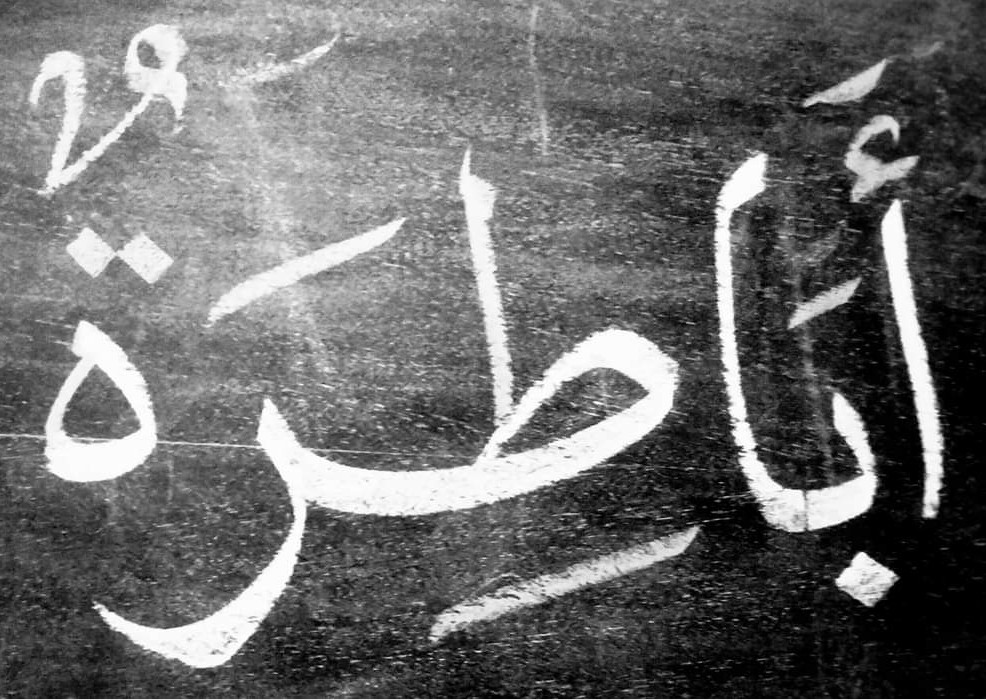 أَبَاطِرَةٌ